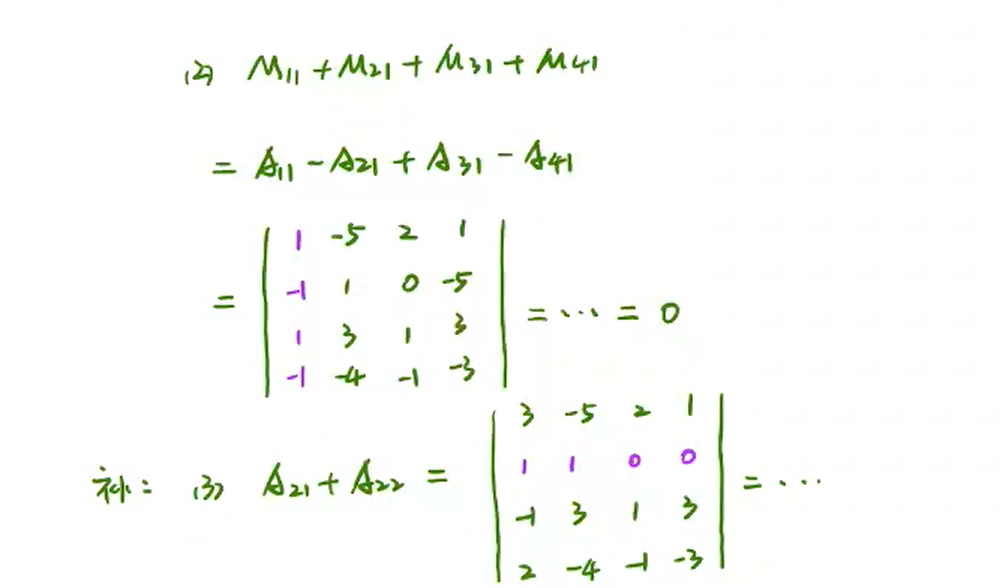 (2) M11 + M21 + M31 + M41
= A11 - A21 + A31 - A41
= | 1 -5 2 1 |
| -1 1 0 -5 |
| 1 3 1 3 | = ... = 0
| -1 -4 -1 -3 |
| 3 -5 2 1 |
补: (3) A21 + A22 = | 1 1 0 0 | = ...
| -1 3 1 3 |
| 2 -4 -1 -3 |